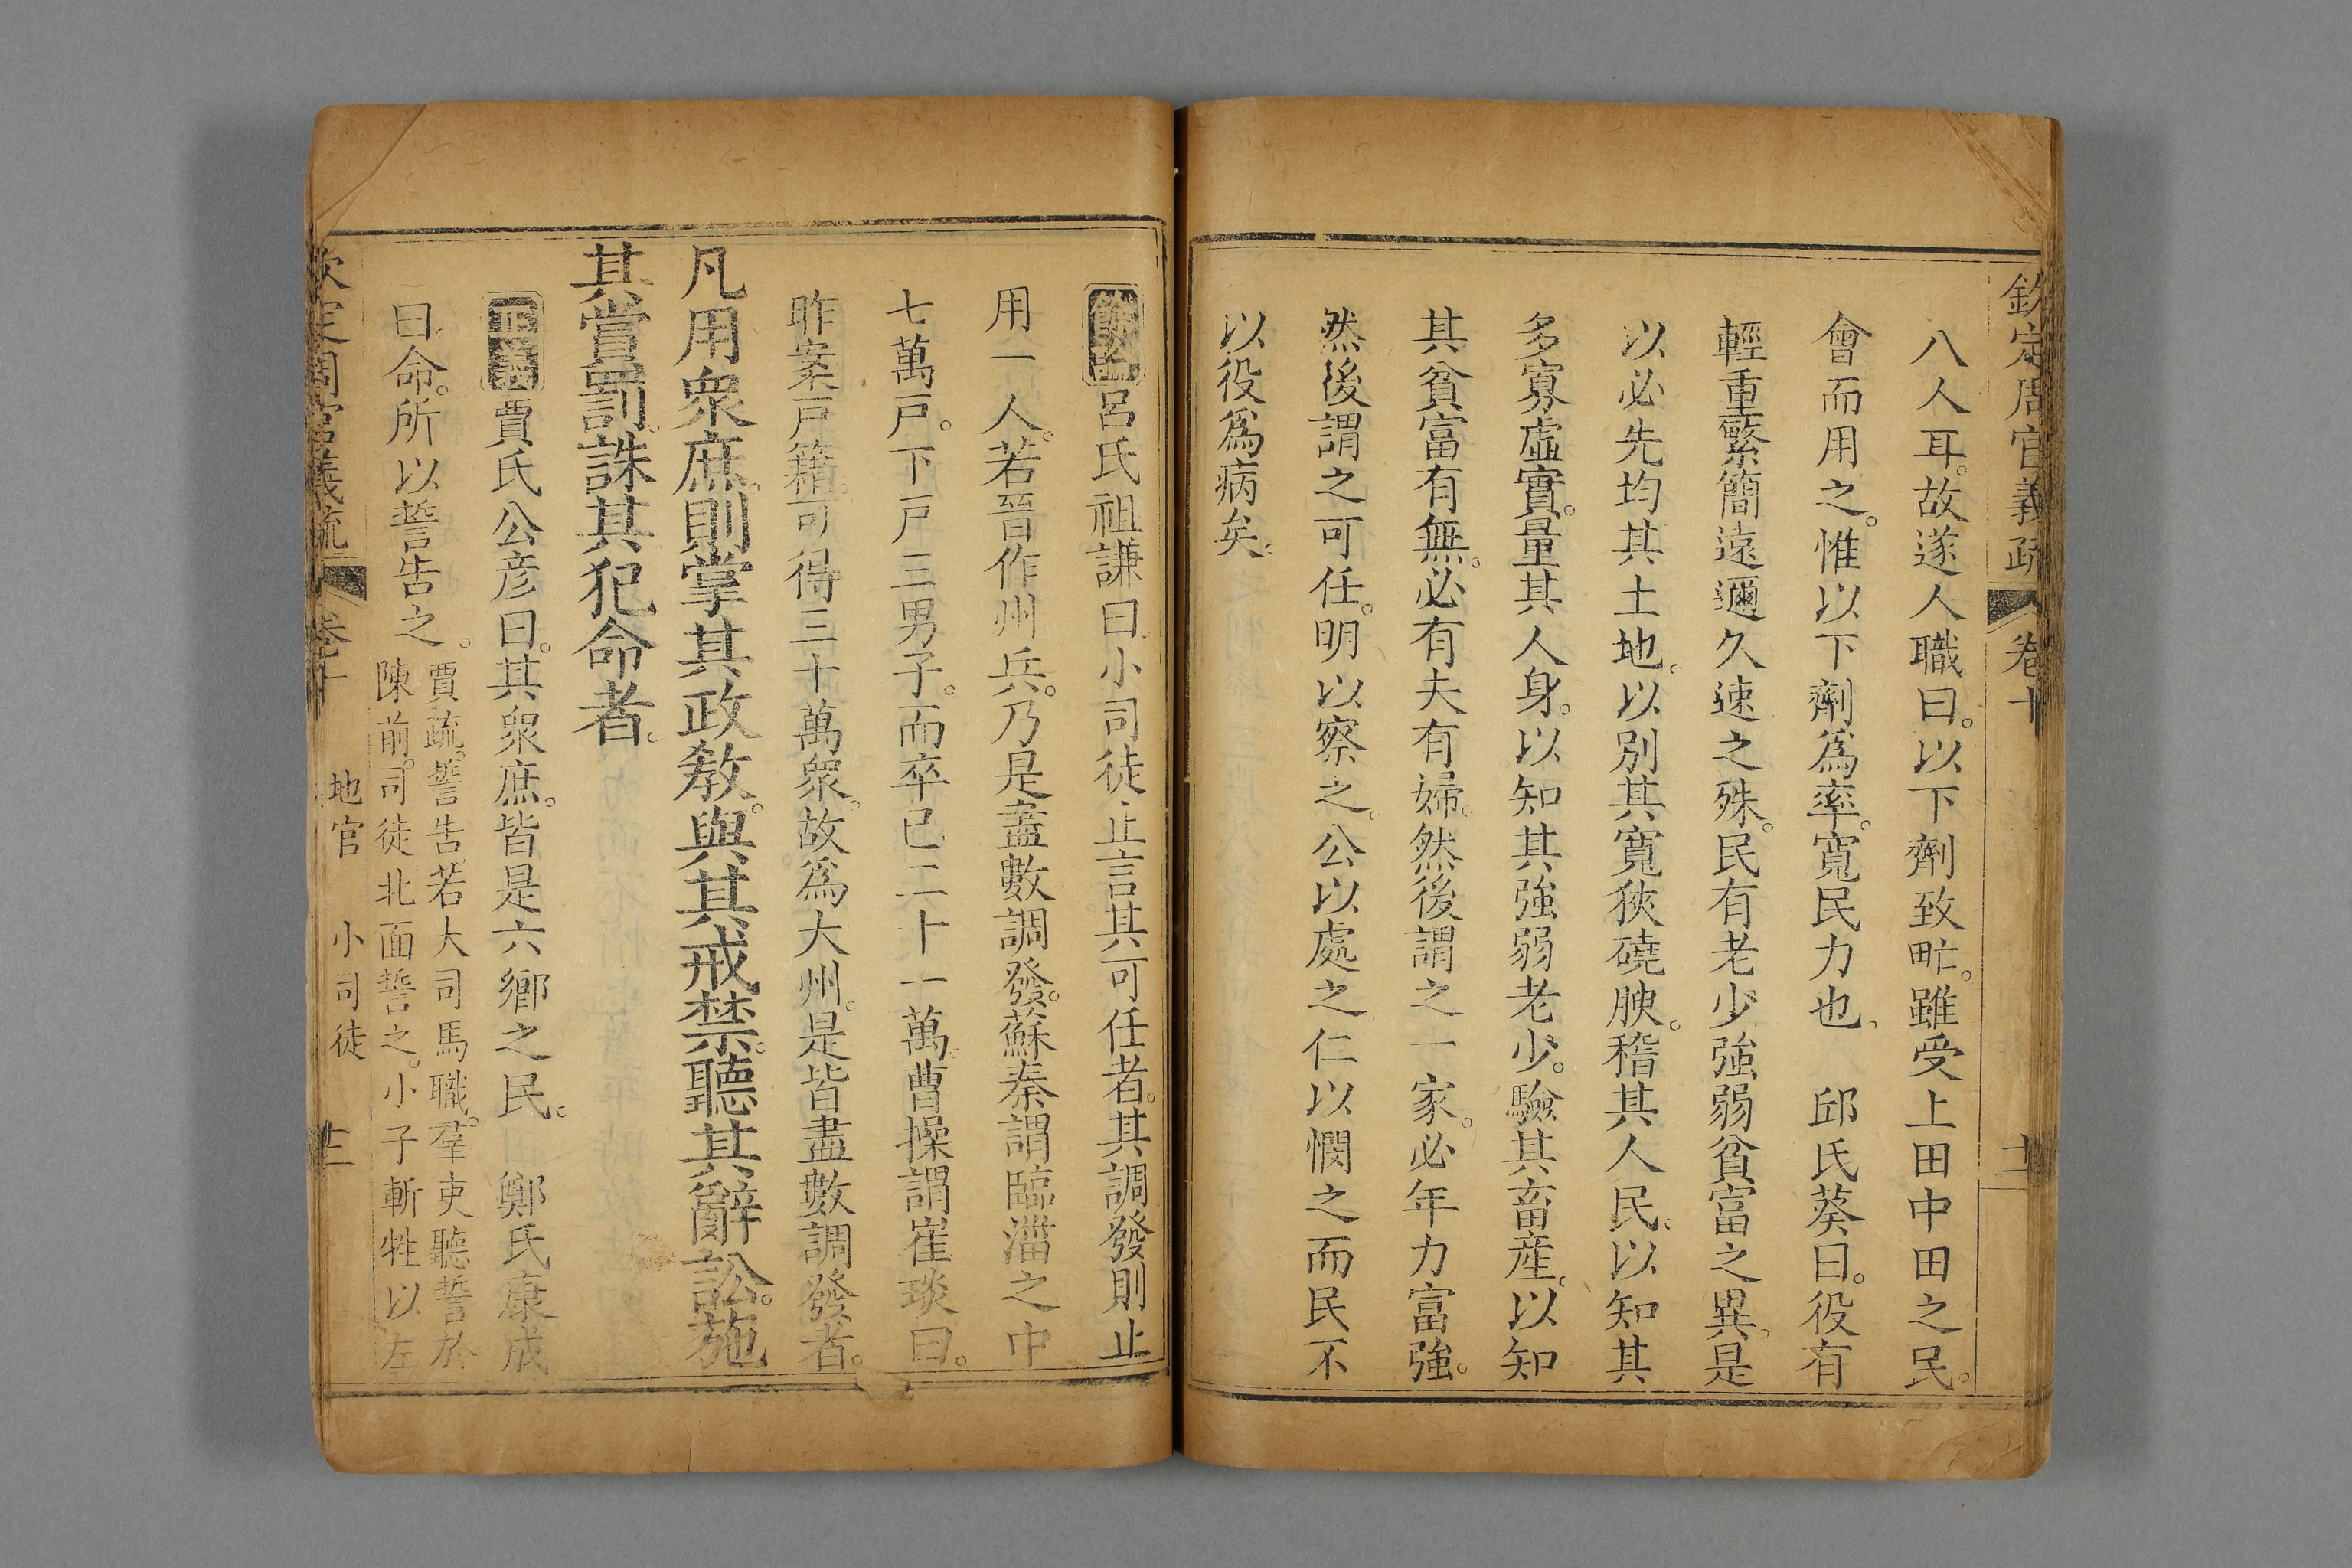 欽定周官義疏 卷十 十二
八人耳。故遂人職曰。以下劑致甿。雖受上田中田之民。
會而用之。惟以下劑爲率。寬民力也。 邱氏葵曰。役有
輕重繁簡遠邇久速之殊。民有老少強弱貧富之異。是
以必先均其土地。以別其寬狹磽腴。稽其人民。以知其
多寡虛實。量其人身。以知其強弱老少。驗其畜產。以知
其貧富有無。必有夫有婦。然後謂之一家。必年力富強。
然後謂之可任。明以察之。公以處之。仁以憫之。而民不
以役爲病矣。
呂氏祖謙曰。小司徒止言其可任者。其調發則止
用一人。若晉作州兵。乃是盡數調發。蘇秦謂臨淄之中
七萬戸。下戸三男子。而卒已二十一萬。曹操謂崔琰曰。
昨案戸籍。可得三十萬衆。故爲大州。是皆盡數調發者。
凡用衆庶。則掌其政教。與其戒禁。聽其辭訟。施
其賞罰。誅其犯命者。
正義賈氏公彥曰。其衆庶。皆是六鄉之民。 鄭氏康成
曰。命。所以誓告之。
賈疏。誓告。若大司馬職。羣吏聽誓於
陳前。司徒北面誓之。小子斬牲以左
欽定周官義疏 卷十 地官 小司徒 十三